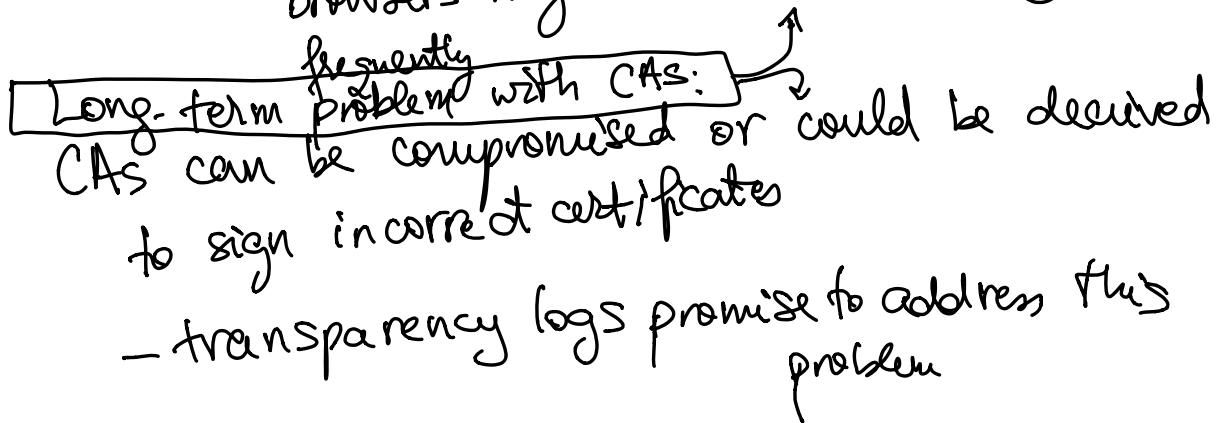 browsers
frequently
Long-term problem with CAs:
CAs can be compromised or could be deceived
to sign incorrect certificates
- transparency logs promise to address this
problem